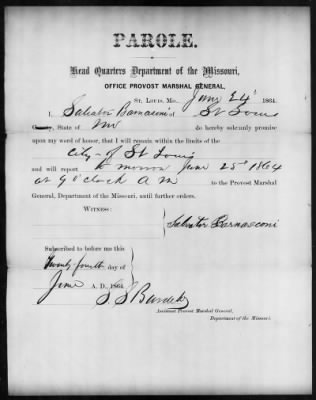 PAROLE.
Head Quarters Department of the Missouri,
OFFICE PROVOST MARSHAL GENERAL,
ST. LOUIS, MO., June 24th 1864.
I, Salvator Barnasconi of St Louis
County, State of Mo do hereby solemnly promise
upon my word of honor, that I will remain within the limits of the
City of St Louis
and will report to morrow June 25th 1864
at 9 o'clock A M to the Provost Marshal
General, Department of the Missouri, until further orders.
WITNESS:
Salvator Barnasconi
Subscribed to before me this
Twenty-fourth day of
June A. D., 1864
S. S. Burdett
Assistant Provost Marshal General,
Department of the Missouri.